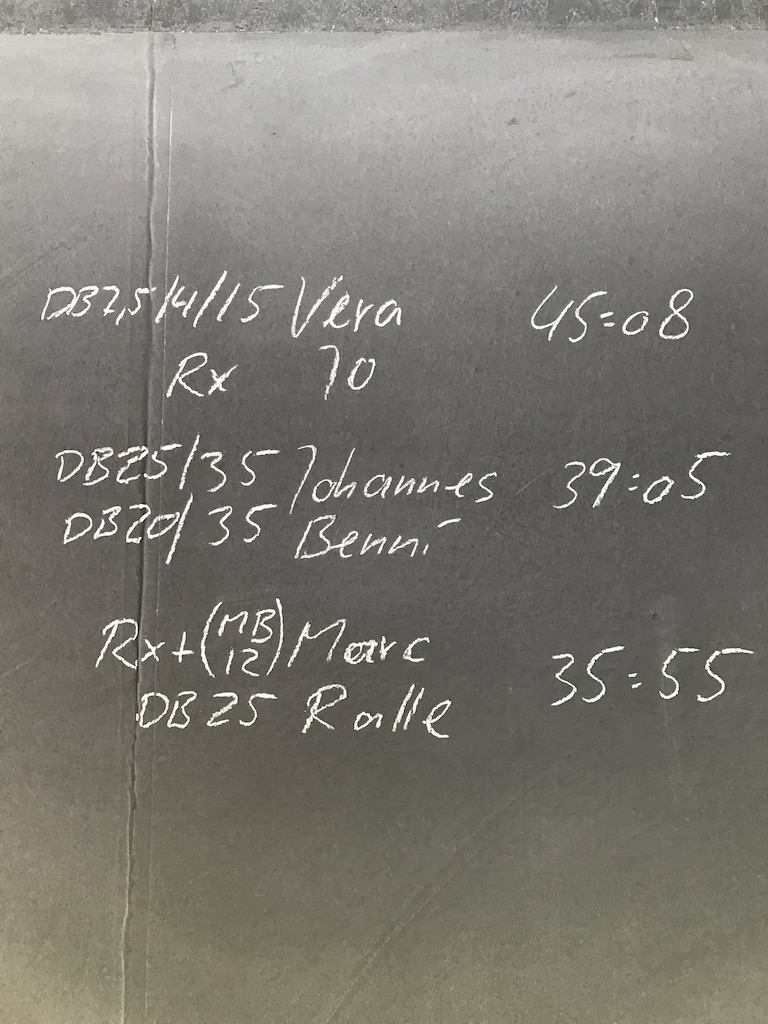 DB7,5/4/15 Vera 45:08
Rx Jo
DB25/35 Johannes 39:05
DB20/35 Benni
Rx+(MB 12) Marc 35:55
DB25 Ralle